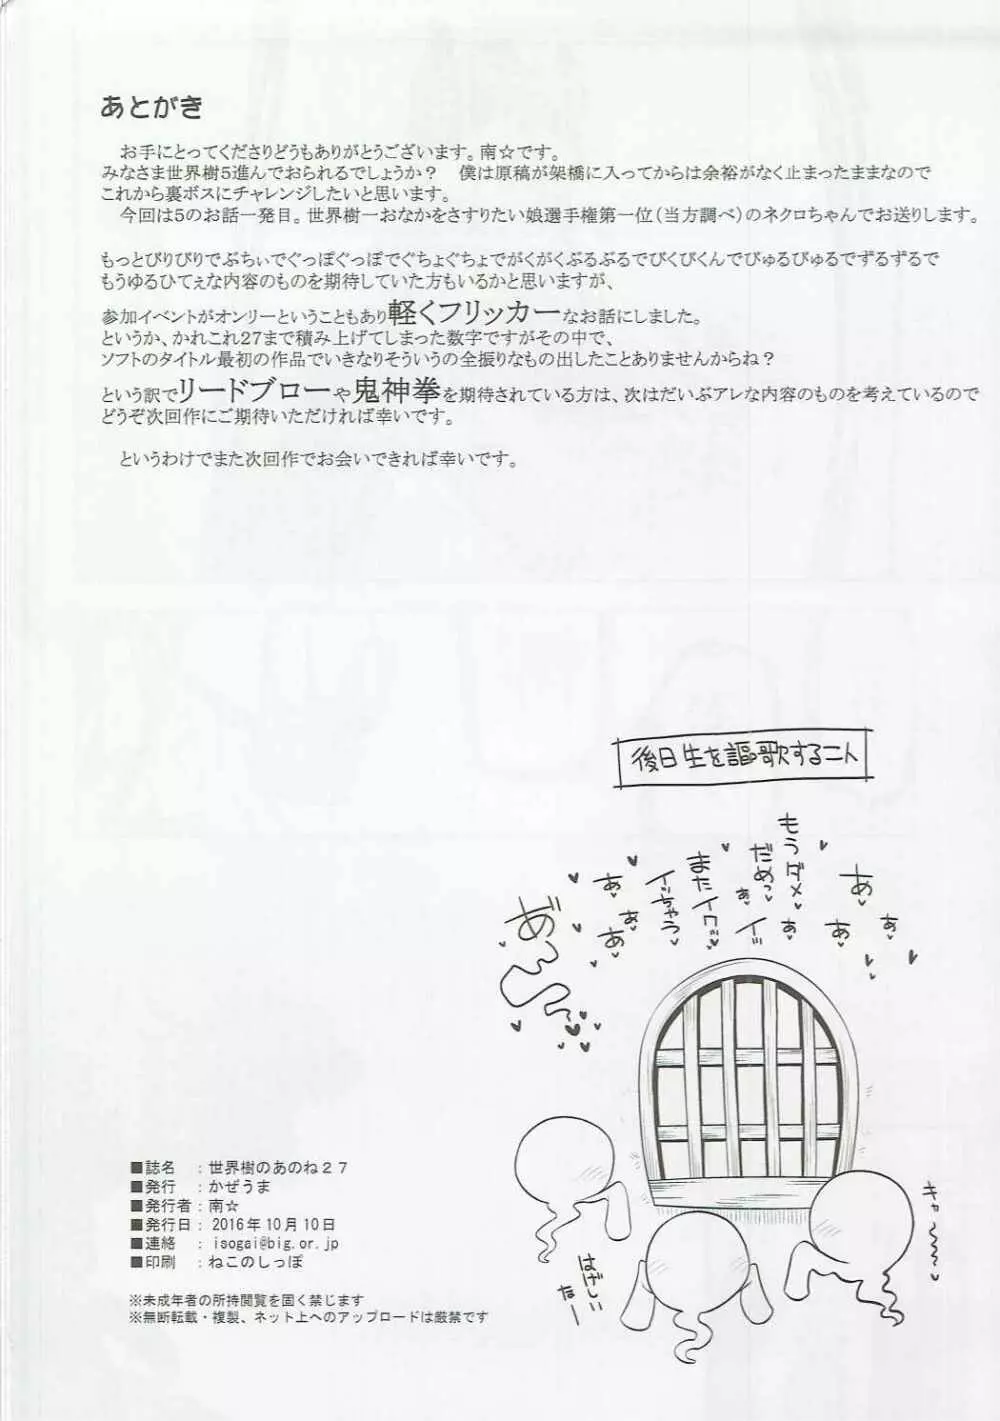 あとがき
お手にとってくださりどうもありがとうございます。南☆です。
みなさま世界樹5進んでおられるでしょうか？　僕は原稿が架橋に入ってからは余裕がなく止まったままなので
これから裏ボスにチャレンジしたいと思います。
今回は5のお話一発目。世界樹一おなかをさすりたい娘選手権第一位（当方調べ）のネクロちゃんでお送りします。
もっとびりびりでぶちぃでぐっぽぐっぽでぐちょぐちょでがくがくぶるぶるでびくびくんでびゅるびゅるでずるずるで
もうゆるひてぇな内容のものを期待していた方もいるかと思いますが、
参加イベントがオンリーということもあり軽くフリッカーなお話にしました。
というか、かれこれ27まで積み上げてしまった数字ですがその中で、
ソフトのタイトル最初の作品でいきなりそういうの全振りなもの出したことありませんからね？
という訳でリードブローや鬼神拳を期待されている方は、次はだいぶアレな内容のものを考えているので
どうぞ次回作にご期待いただければ幸いです。
というわけでまた次回作でお会いできれば幸いです。
後日生を謳歌する二人
あ♥
あ♥
あ♥
もうダメ♥
あ♥
だめっ♥
あ♥
イッ
またイクッ♥
イッちゃう♥
あ♥
あ♥
あ♥
あ゛
キャ〜
はげしい
なー
■誌名　：世界樹のあのね２７
■発行　：かぜうま
■発行者：南☆
■発行日：2016年10月10日
■連絡　：isogai@big.or.jp
■印刷　：ねこのしっぽ
※未成年者の所持閲覧を固く禁じます
※無断転載・複製、ネット上へのアップロードは厳禁です